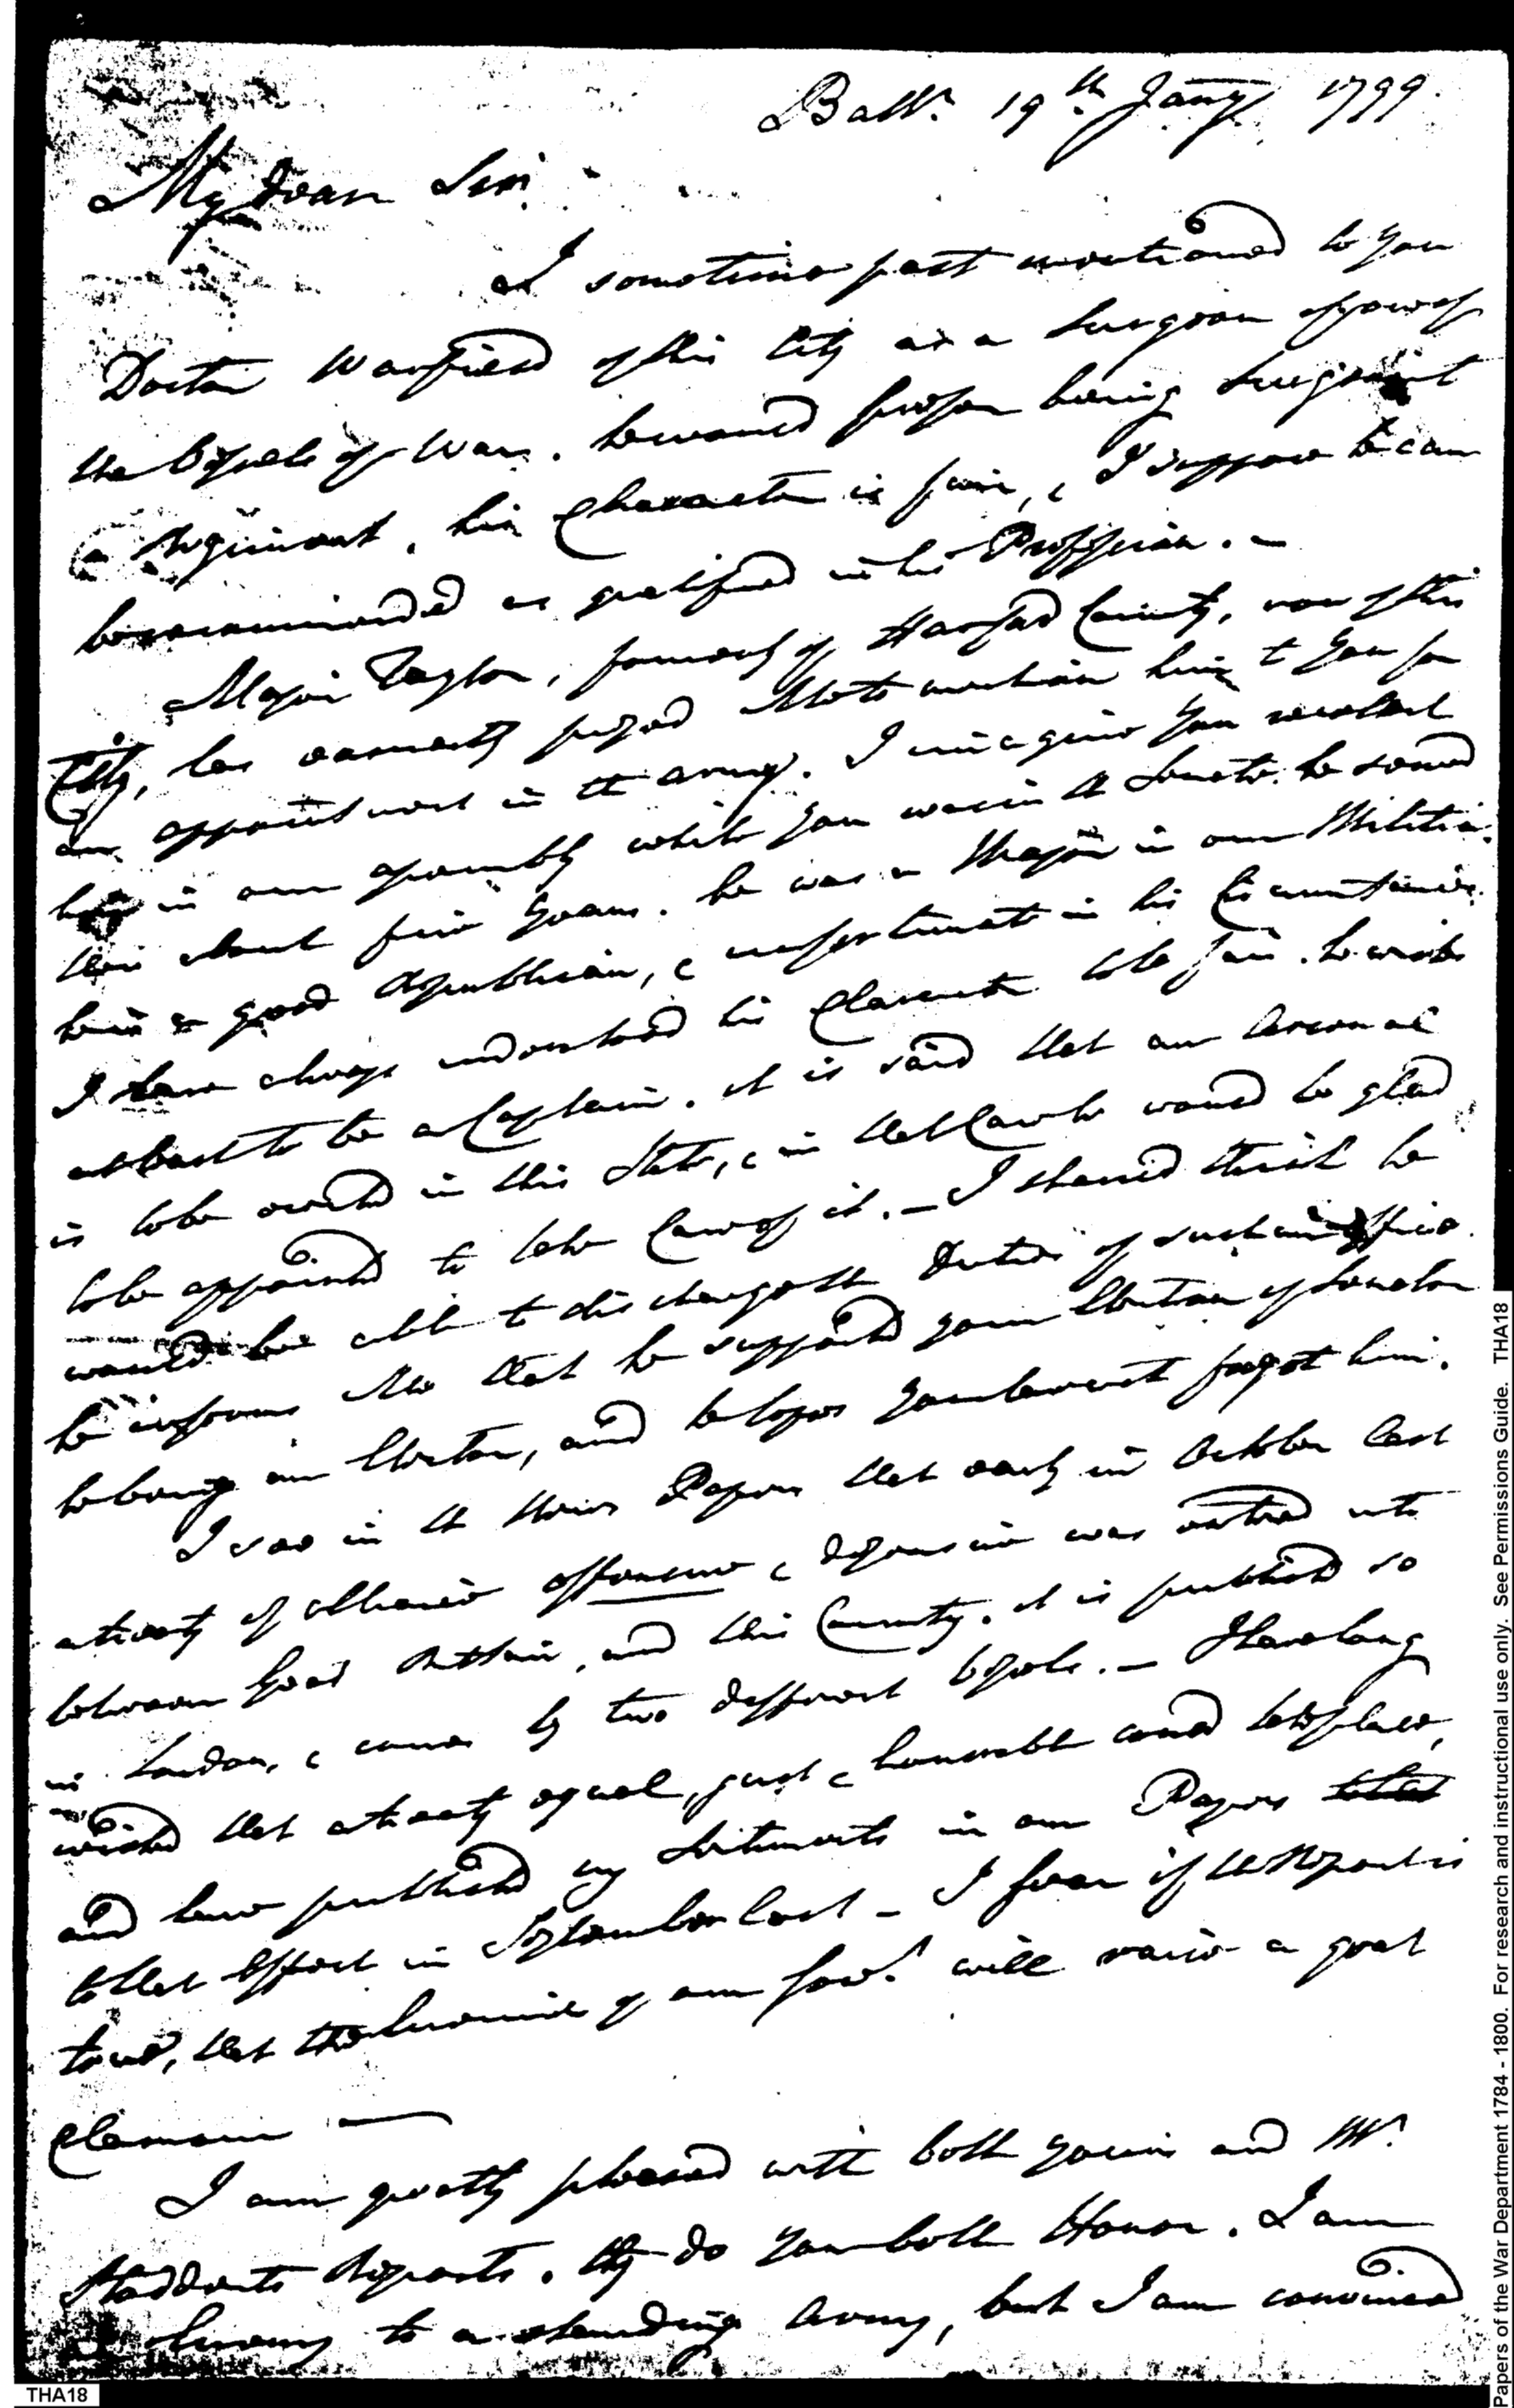 Balt. 19th Jany 1799.
My dear Sir.
I sometime past mentioned to you
Doctor Warfield of this City as a Surgeon of
the Vessels of War. he would prefer being Surgeon
a Regiment, his Character is fair, & I suppose he can
be recommended as qualified in his Proffession. –
Major Taylor, formerly of Harford County, now of this
City, has earnestly Me to mention him to you for
an appointment in the army. I imagine you recollect
him in our assembly while you was in the Senate. he served
there about five years. he was a Major in our Militia.
he is a good Republican, & unfortunate in his Circumstances.
I have always understood his Character to be fair. he wishes
at least to be a Captain. it is said that an Arsenal
is to be erected in this State, & in that Case he would be glad
to be appointed to take Care of it. – I should think he
would be able to discharge the Duties of such an Office.
he informs Me that he supported your Election of Senator
he being an Elector, and he hopes you have not forgot him.
I see in the News Papers that early in October last
a treaty of alliance offensive & defensive was entred into
between Great Brittain, and this Country. it is published so
in London, & comes by two different Vessels. – I have long
wished that a treaty equal, just & honorable could take place,
and have published my Sentiments in our Papers
to that Effect in September last – I fear if the Report is
true, that the Enemies of our Govt. will raise a great
Clamour —
I am greatly pleased with both yours and Mr.
Stodderts Reports. they do you both Honor. I am
Enemy to a standing Army, but I am convinced
THA18
Papers of the War Department 1784 - 1800. For research and instructional use only. See Permissions Guide. THA18